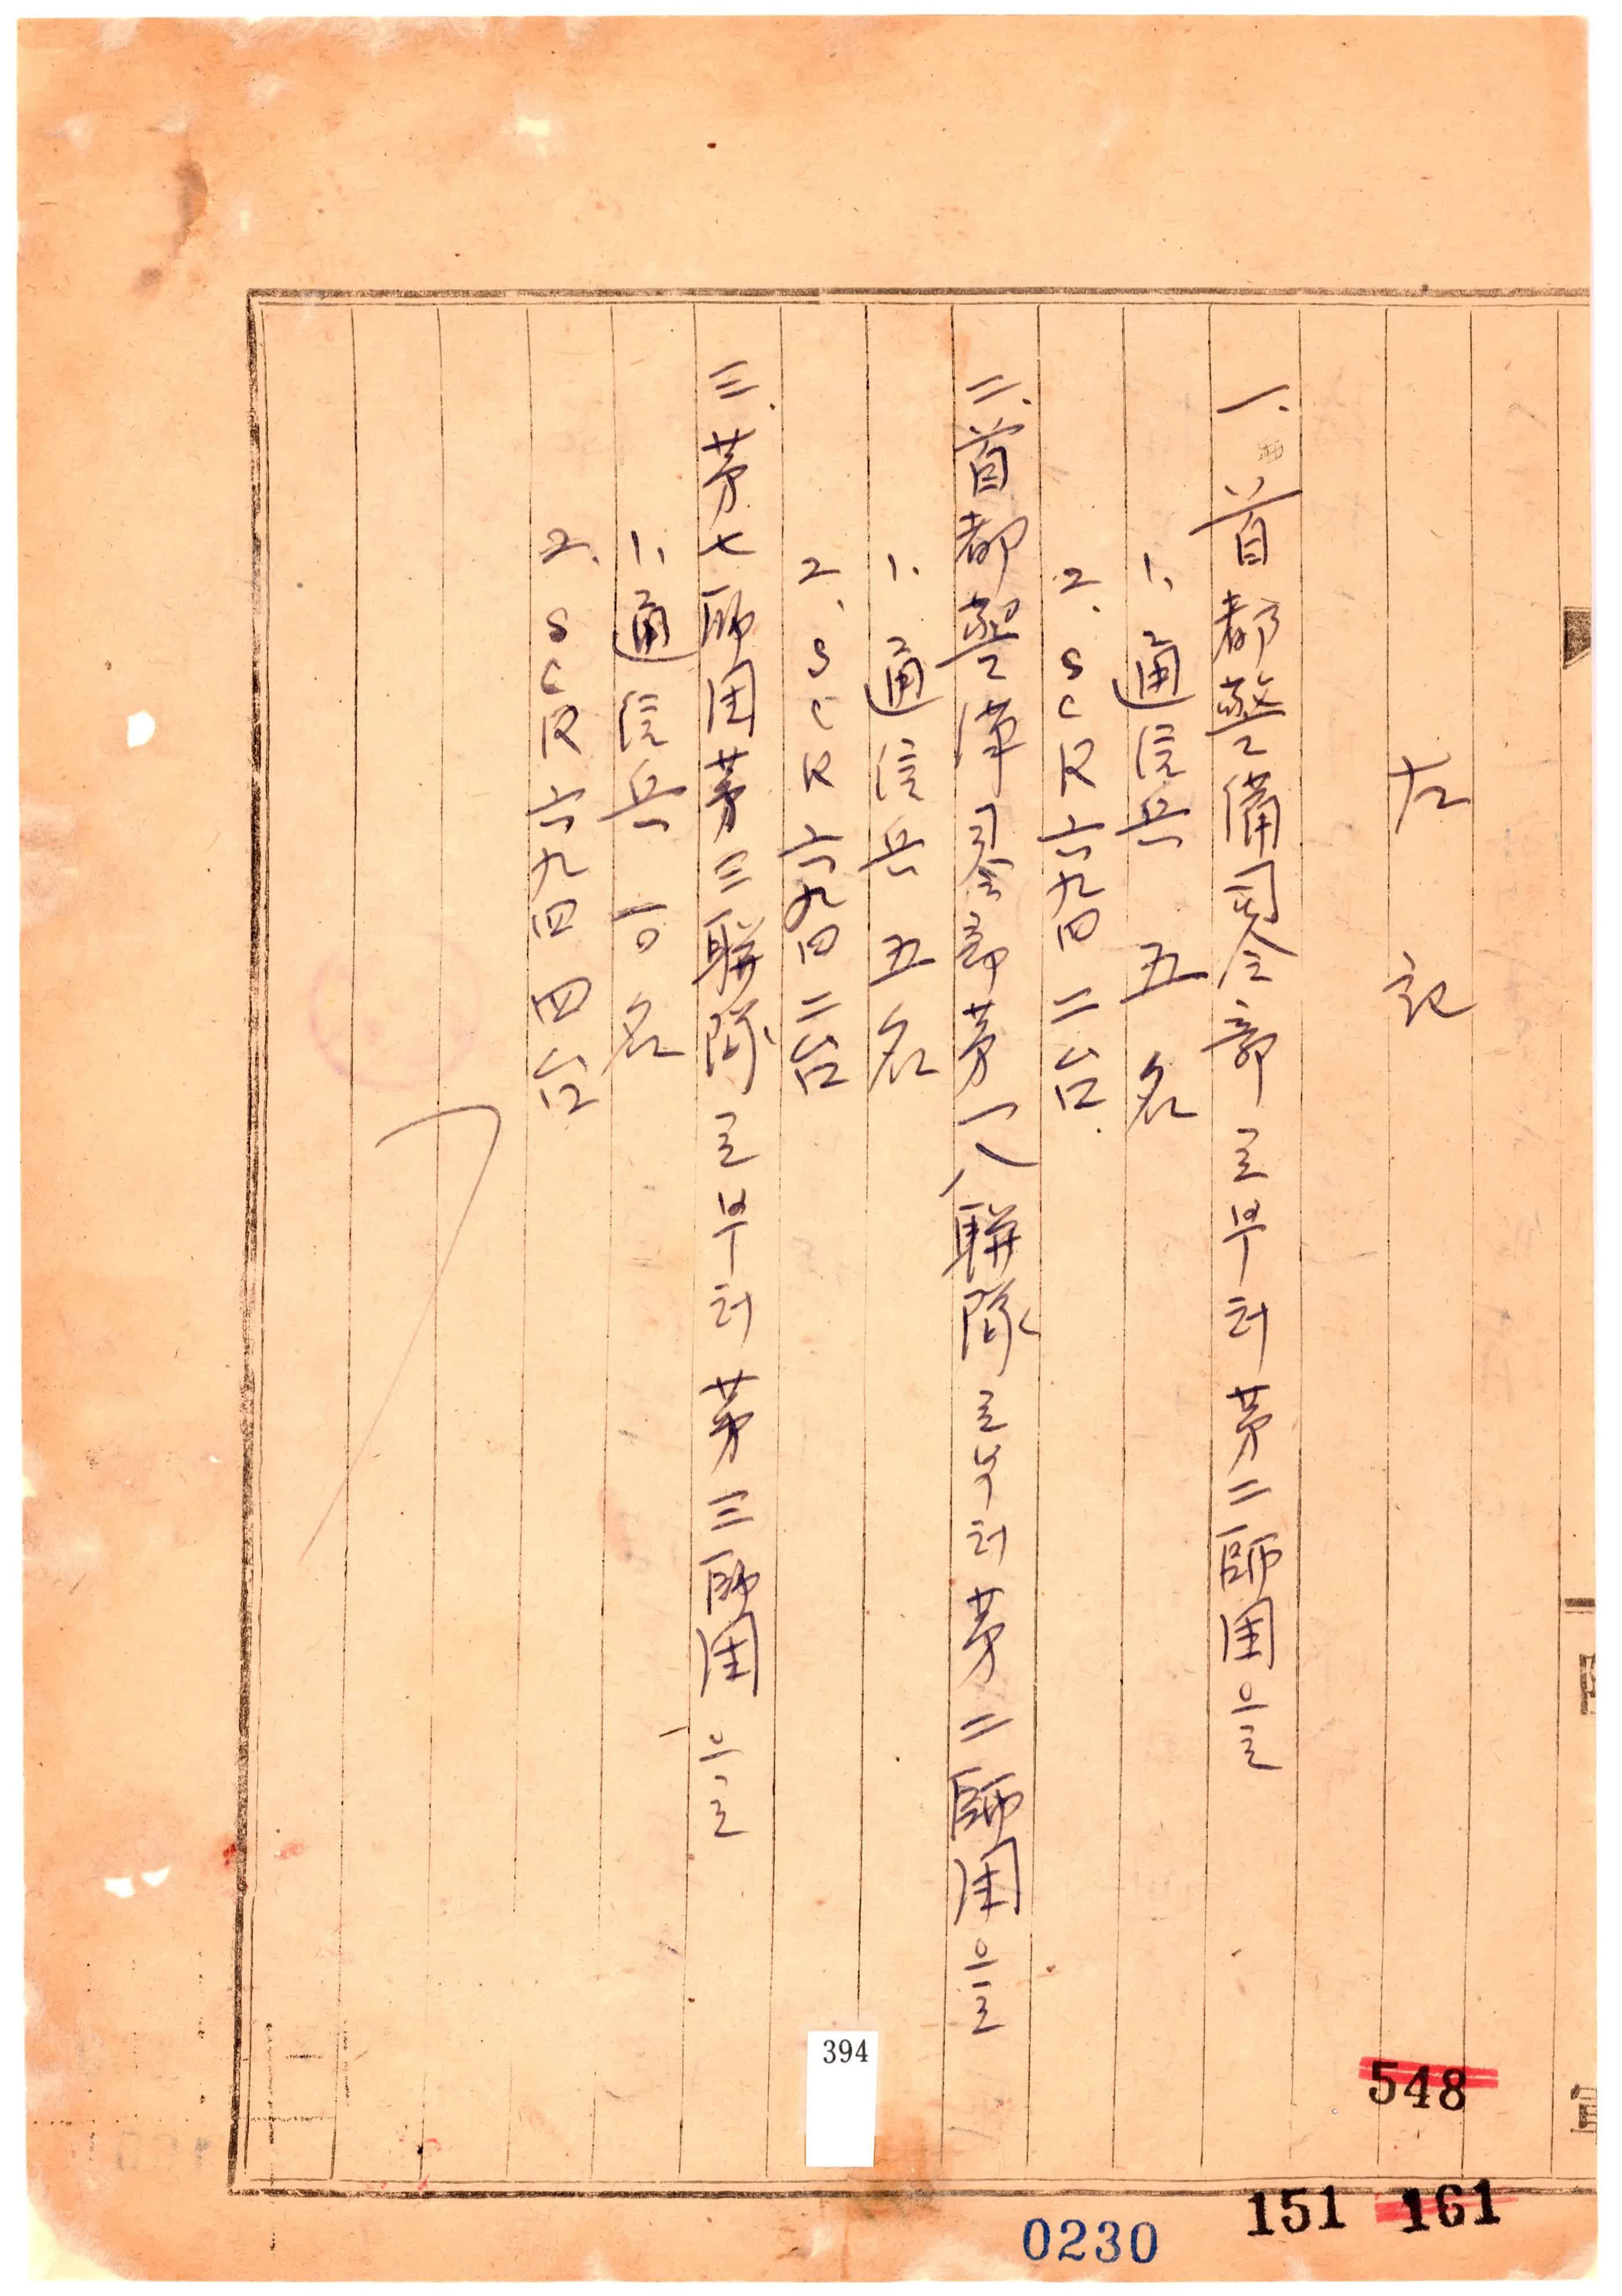 左記
一、首都警備司令部로부터 第二師团으로
1、通信兵 五名
2、SCR六九四 二台
二、首都警備司令部 第一八聯隊로부터 第二師团으로
1、通信兵 五名
2、SCR六九四 二台
三、第七師团 第三聯隊로부터 第三師团으로
1、通信兵 一〇名
2、SCR六九四 四台
394
548
151 161
0230